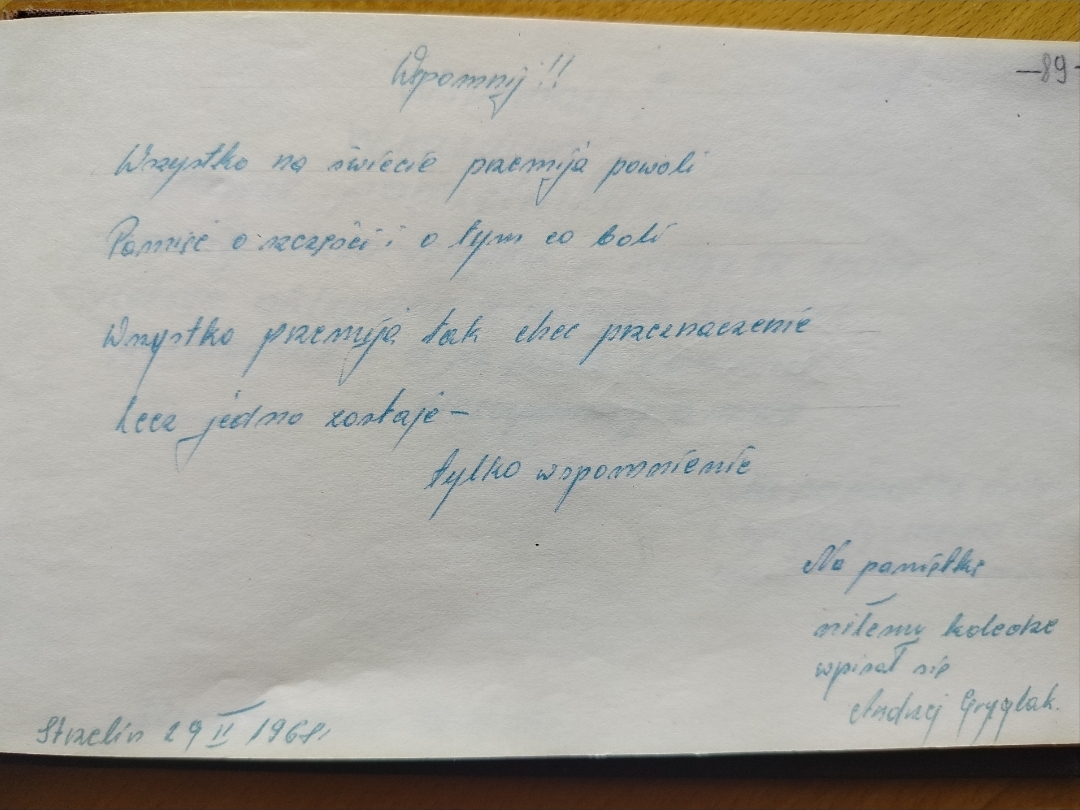 Wspomnij!!
-89-
Wszystko na świecie przemija powoli
Pamięć o szczęściu i o tym co boli
Wszystko przemija tak chce przeznaczenie
Lecz jedno zostaje -
tylko wspomnienie
Na pamiątkę
miłemu koledze
wpisał się
Andrzej Gryglak.
Strzelin 29 II 1968r.